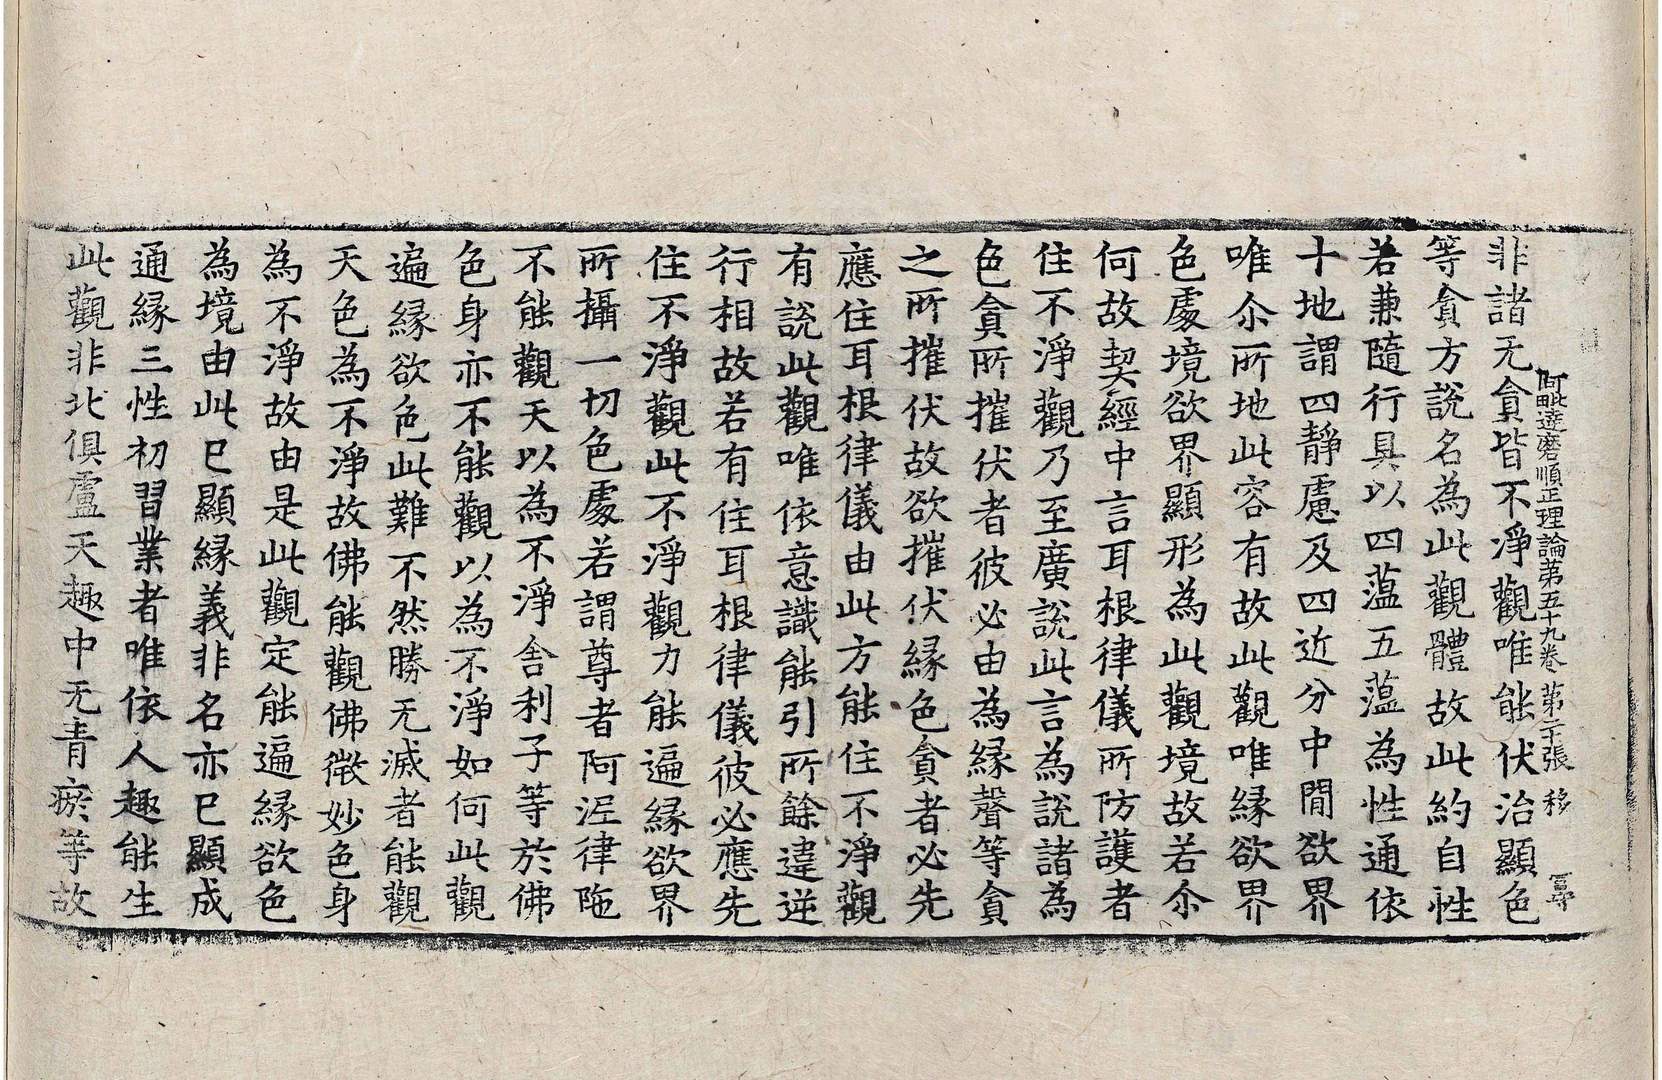 阿毗達磨順正理論第五十九卷 第二十張 移
非諸无貪皆不淨觀唯能伏治顯色
等貪方說名為此觀體故此約自性
若兼隨行具以四蕰五蕰為性通依
十地謂四靜慮及四近分中間欲界
唯尒所地此容有故此觀唯緣欲界
色處境欲界顯形為此觀境故若尒
何故契經中言耳根律儀所防護者
住不淨觀乃至廣說此言為說諸為
色貪所摧伏者彼必由為緣聲等貪
之所摧伏故欲摧伏緣色貪者必先
應住耳根律儀由此方能住不淨觀
有說此觀唯依意識能引所餘違逆
行相故若有住耳根律儀彼必應先
住不淨觀此不淨觀力能遍緣欲界
所攝一切色處若謂尊者阿泥律陁
不能觀天以為不淨舍利子等於佛
色身亦不能觀以為不淨如何此觀
遍緣欲色此難不然勝无滅者能觀
天色為不淨故佛能觀佛微妙色身
為不淨故由是此觀定能遍緣欲色
為境由此已顯緣義非名亦已顯成
通緣三性初習業者唯依人趣能生
此觀非北俱盧天趣中无青瘀等故